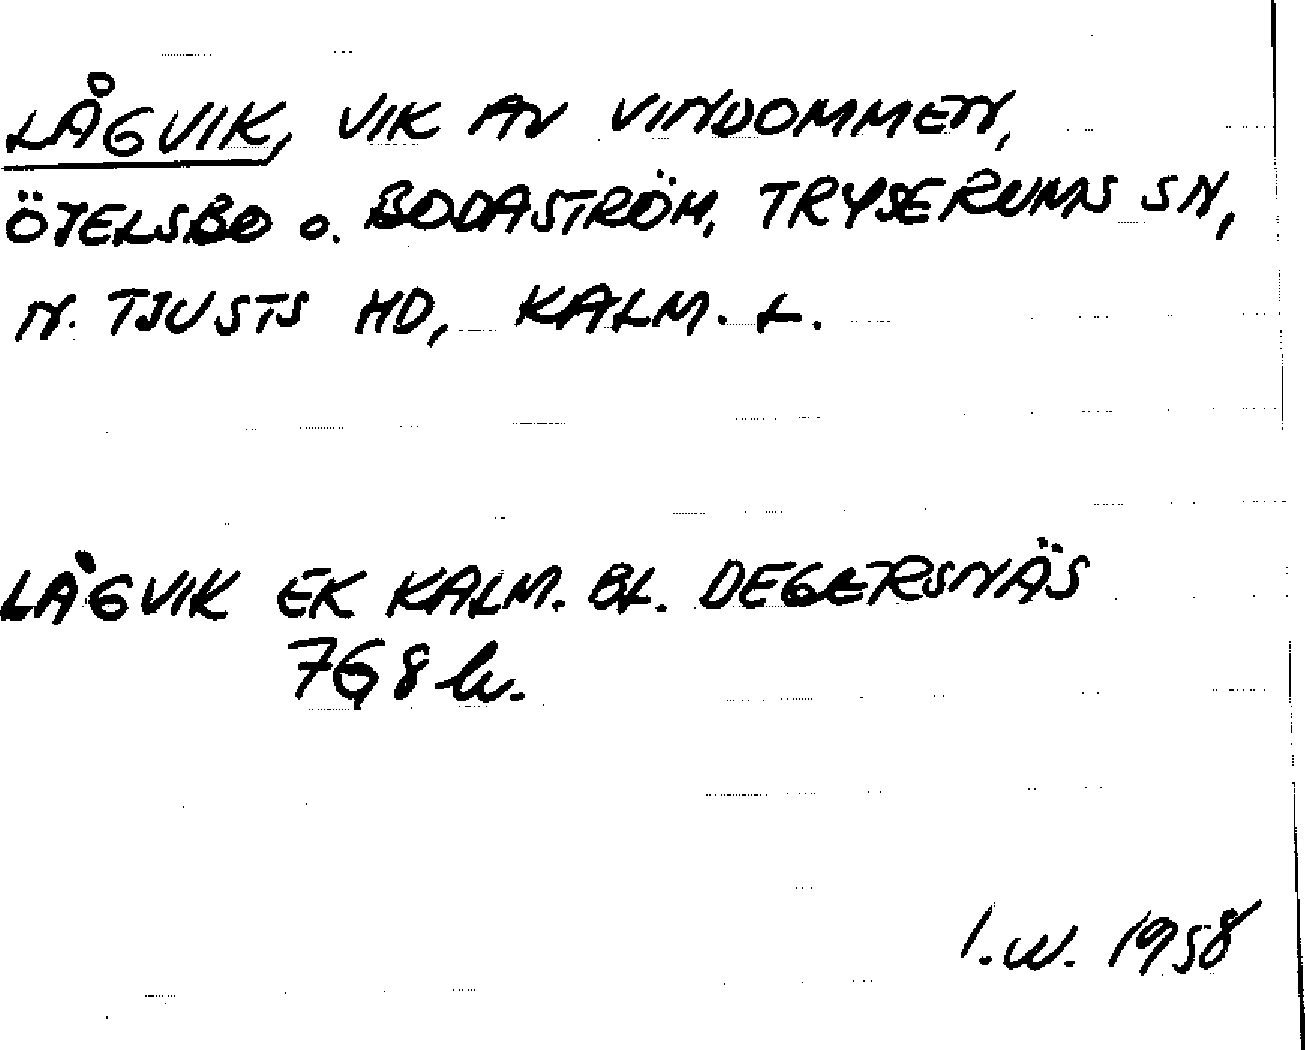 LÅGVIK, VIK AV VINDOMMEN,
ÖTELSBO O. BODASTRÖM, TRYSERUMS SN,
N. TJUSTS HD, KALM. L.
LÅGVIK EK KALM. BL. DEGERSNÄS
768 
I.W. 1958